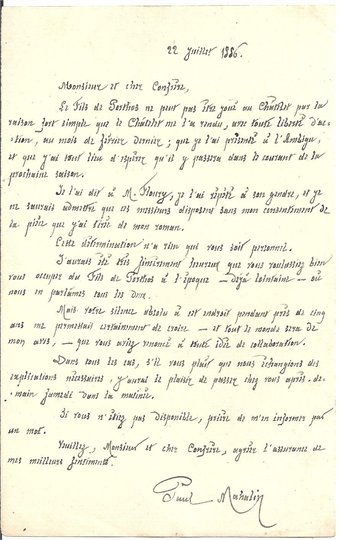 22 Juillet 1886.
Monsieur et cher Confrère,
Le Fils de Porthos ne peut pas être joué au Châtelet par la
raison fort simple que le Châtelet me l'a rendu, avec toute liberté d'ac-
tion, au mois de février dernier ; que je l'ai présenté à l'Ambigu,
et que j'ai tout lieu d'espérer qu'il y passera dans le courant de la
prochaine saison.
Je l'ai dit à M. Floury, je l'ai répété à son gendre, et je
ne saurais admettre que ces messieurs disposent sans mon consentement de
la pièce que j'ai tirée de mon roman.
Cette détermination n'a rien qui vous soit personnel.
J'aurais été très sincèrement heureux que vous voulussiez bien
vous occuper du Fils de Porthos à l'époque — déjà lointaine — où
nous en parlâmes tous les deux.
Mais votre silence absolu à cet endroit pendant près de cinq
ans me permettait certainement de croire — et tout le monde sera de
mon avis, — que vous aviez renoncé à toute idée de collaboration.
Dans tous les cas, s'il vous plaît que nous échangions des
explications nécessaires, j'aurai le plaisir de passer chez vous après-de-
main samedi dans la matinée.
Si vous n'étiez pas disponible, prière de m'en informer par
un mot.
Veuillez, Monsieur et cher Confrère, agréer l'assurance de
mes meilleurs sentiments.
Paul Mahalin